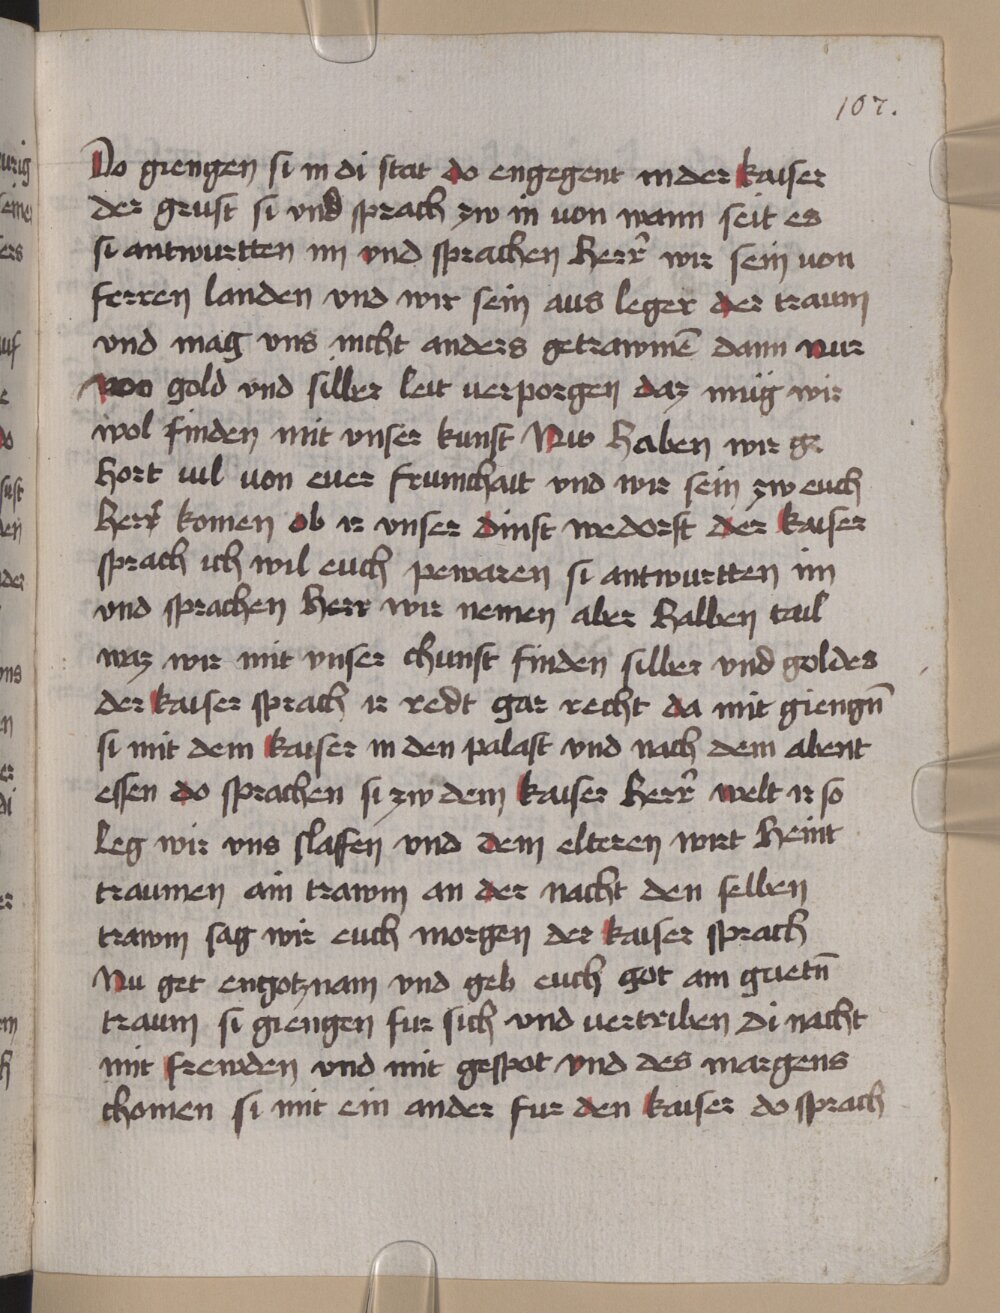 107.
Do giengen si in di stat do engegent in der kaiser
der grust si vnd sprach zw in von wann seit es
si antwurtten im vnd sprachen herr̄ wir sein von
ferren landen vnd wir sein aus leger der traum
vnd mag vns nicht anders getrawmē dann nur
woo gold vnd silber leit verporgen daz müg wir
wol finden mit vnser kunst Nw haben wir ge
hort vil von euer frumchait vnd wir sein zw euch
herr̄ komen ob ir vnser dinst wedorft der kaiser
sprach ich wil euch pewaren si antwurtten im
vnd sprachen herr wir nemen aber halben tail
waz wir mit vnser chunst finden silber vnd goldes
der kaiser sprach ir redt gar recht da mit giengn̄
si mit dem kaiser in den palast vnd nach dem abent
essen do sprachen si zw dem kaiser herr̄ welt ir so
leg wir vns slaffen vnd dem elteren wirt heint
traumen ain trawm an der nacht den selben
trawm sag wir euch morgen der kaiser sprach
Nu get engotznam vnd geb euch got ain guetn̄
traum si giengen fur sich vnd vertriben di nacht
mit frewden vnd mit gespot vnd des margens
chomen si mit ein ander fur den kaiser do sprach